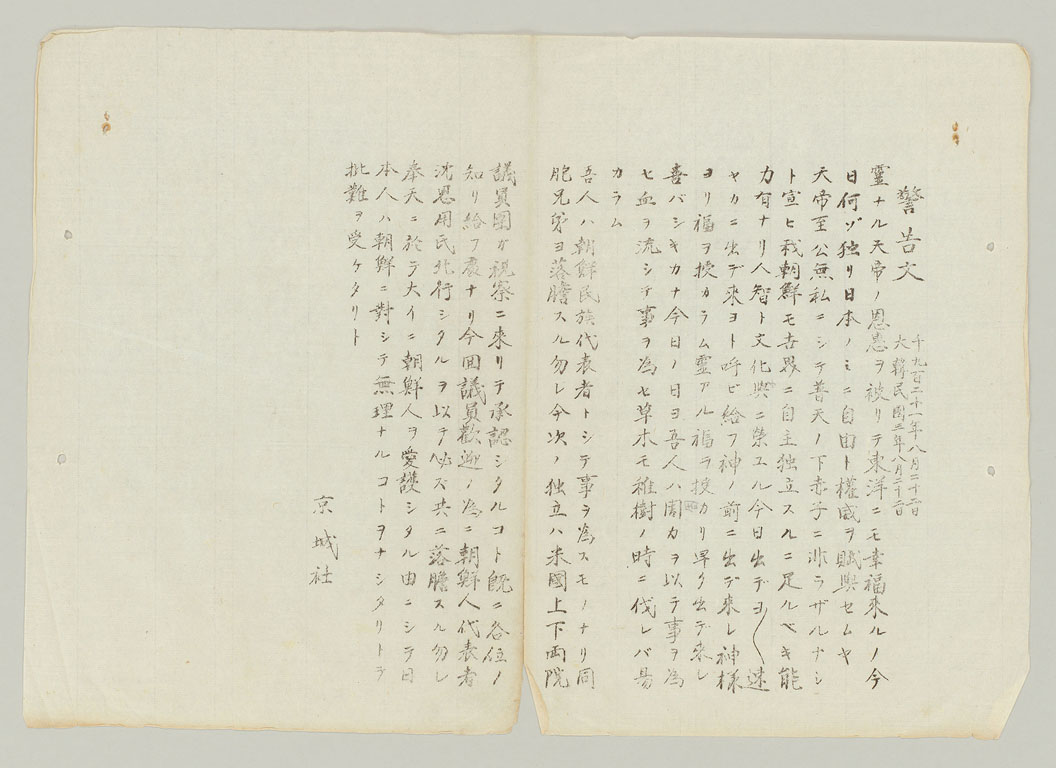 警告文
千九百二十一年八月二十二日
大韓民国三年八月二十二日
霊ナル天帝ノ恩愚ヲ被リテ東洋ニモ幸福来ルノ今
日何ゾ独リ日本ノミニ自由ト権威ヲ賦與セムヤ
天帝至公無私ニシテ普天ノ下赤子ニ非ラザルナシ
ト宣ヒ我朝鮮モ世界ニ自主独立スルニ足ルベキ能
力有ナリ人智ト文化與ニ榮ユル今日出デヨ〱速
ヤカニ出デ来ヨト呼ビ給フ神ノ前ニ出デ来レ神様
ヨリ福ヲ授カラム霊アル福ヲ授カリ早ク出デ来レ
喜バシキカナ今日ノ日ヨ吾人ハ周カヲ以テ事ヲ為
セ血ヲ流シテ事ヲ為セ草木モ稚樹ノ時ニ伐レバ易
カラム
吾人ハ朝鮮民族代表者トシテ事ヲ為スモノナリ同
胞兄弟ヨ落膽スル勿レ今次ノ独立ハ米國上下両院
議員團ガ視察ニ来リテ承認シタルコト既ニ各位ノ
知リ給フ處ナリ今回議員歓迎ノ為ニ朝鮮人代表者
沈恩用氏北行シタルヲ以テ必ズ共ニ落膽スル勿レ
奉天ニ於テ大イニ朝鮮人ヲ愛護シタル由ニシテ日
本人ハ朝鮮ニ對シテ無理ナルコトヲナシタリトテ
批難ヲ受ケタリト
京城社